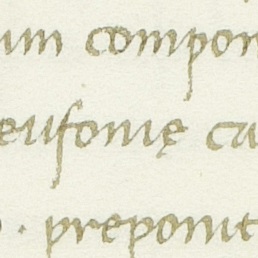 um compon
eufonię ca
. preponit